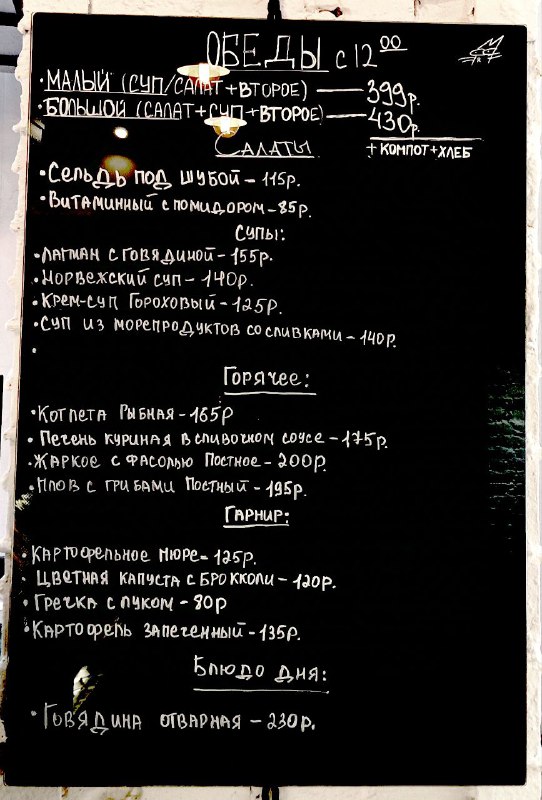 ОБЕДЫ с 12 00
• МАЛЫЙ (СУП/САЛАТ+ВТОРОЕ) — 399р.
• БОЛЬШОЙ (САЛАТ+СУП+ВТОРОЕ) — 430р.
+ КОМПОТ+ХЛЕБ
САЛАТЫ
• Сельдь под шубой - 115р.
• Витаминный с помидором - 85р.
Супы:
• Лагман с говядиной - 155р.
• Норвежский суп - 140р.
• Крем-суп Гороховый - 125р.
• Суп из морепродуктов со сливками - 140р.
•
Горячее:
• Котлета Рыбная - 165р
• Печень куриная в сливочном соусе - 175р.
• Жаркое с фасолью Постное - 200р.
• Плов с грибами Постный - 195р.
Гарнир:
• Картофельное пюре - 125р.
• Цветная капуста с брокколи - 120р.
• Гречка с луком - 80р
• Картофель запеченный - 135р.
Блюдо дня:
• Говядина отварная - 230р.